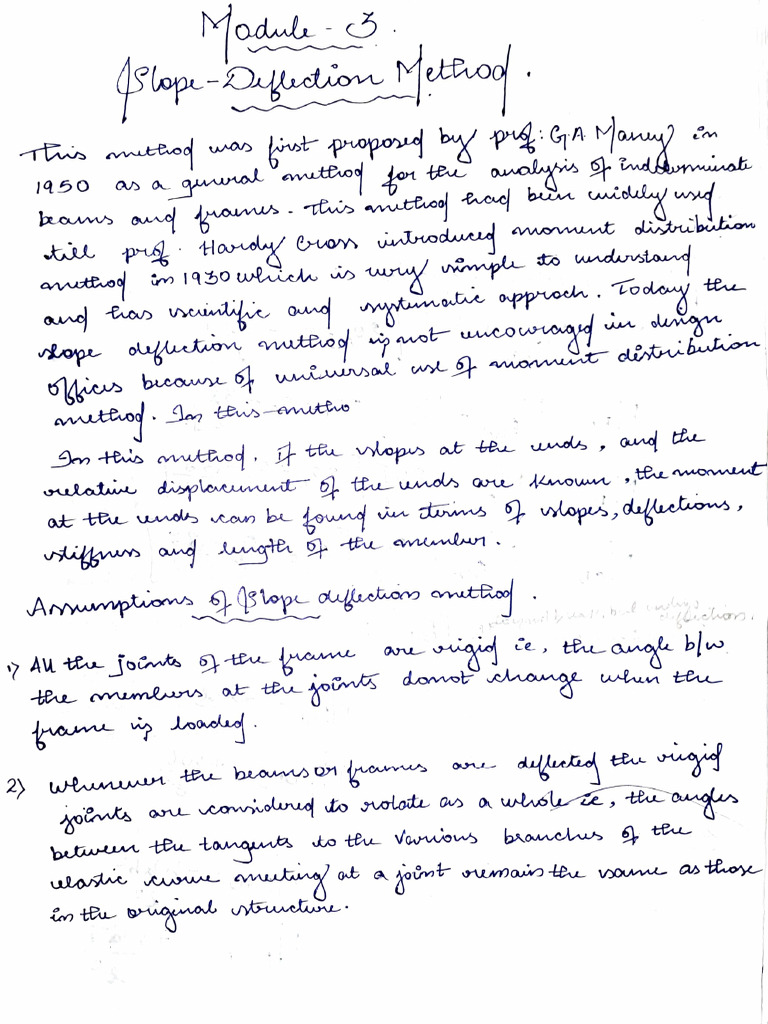 Module - 3.
Slope-Deflection Method.
This method was first proposed by prof: G.A Maney in
1950 as a general method for the analysis of indeterminate
beams and frames. This method had been widely used
till prof. Hardy Cross introduced moment distribution
method in 1930 which is very simple to understand
and has scientific and systematic approch. Today the
slope deflection method is not uncouraged in design
offices because of universal use of moment distribution
method. In this metho
In this method, if the slopes at the ends, and the
relative displacement of the ends are known, the moment
at the ends can be found in terms of slopes, deflections,
stiffness and length of the member.
Assumptions of Slope deflection method.
1) All the joints of the frame are rigid ie, the angle b/w
the members at the joints donot change when the
frame is loaded.
2) Whenever the beams or frames are deflected the rigid
joints are considered to rotate as a whole ie, the angles
between the tangents to the various branches of the
elastic curve meeting at a joint remain the same as those
in the original structure.